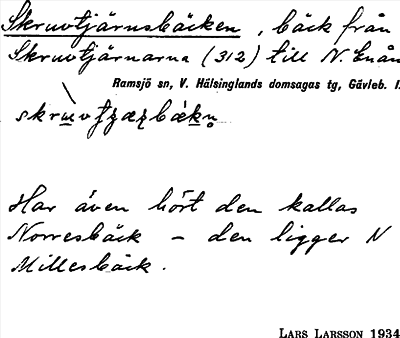 Skruvtjärnsbäcken, bäck från
Skruvtjärnarna (312) till N. Enån
Ramsjö sn, V. Hälsinglands domsagas tg, Gävleb. l.
Har även hört den kallas
Norresbäck – den ligger N
Millesbäck.
LARS LARSSON 1934